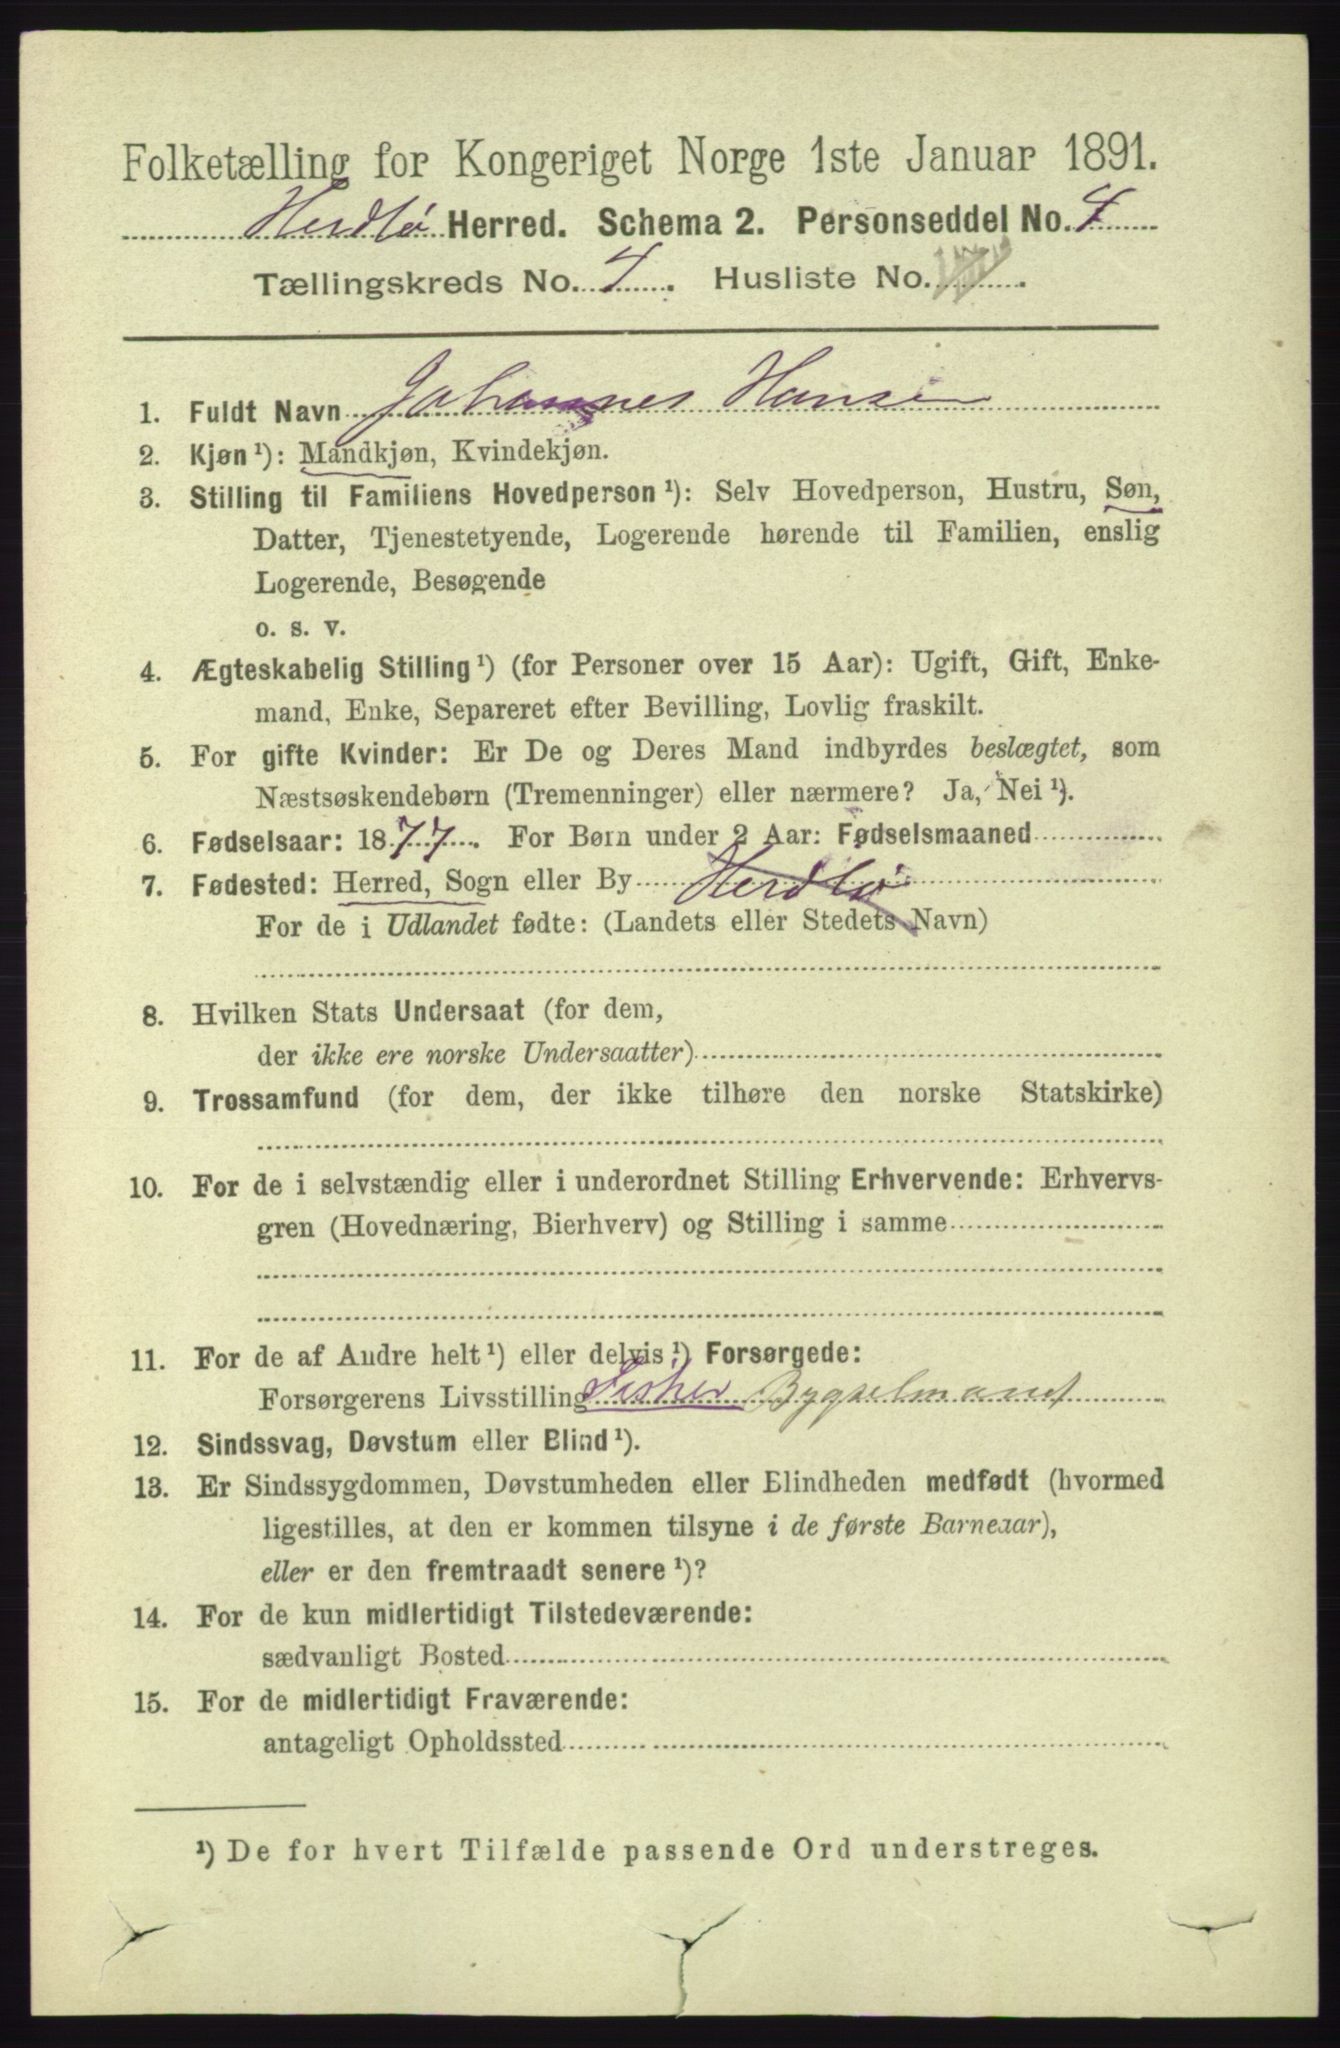 Folketælling for Kongeriget Norge 1ste Januar 1891.
Herdlø Herred. Schema 2. Personseddel No. 4
Tællingskreds No. 4. Husliste No.
1. Fuldt Navn Johannes Hansen
2. Kjøn ¹): Mandkjøn, Kvindekjøn.
3. Stilling til Familiens Hovedperson ¹): Selv Hovedperson, Hustru, Søn,
Datter, Tjenestetyende, Logerende hørende til Familien, enslig
Logerende, Besøgende
o. s. v.
4. Ægteskabelig Stilling ¹) (for Personer over 15 Aar): Ugift, Gift, Enke-
mand, Enke, Separeret efter Bevilling, Lovlig fraskilt.
5. For gifte Kvinder: Er De og Deres Mand indbyrdes beslægtet, som
Næstsøskendebørn (Tremenninger) eller nærmere? Ja, Nei ¹).
6. Fødselsaar: 1877. For Børn under 2 Aar: Fødselsmaaned
7. Fødested: Herred, Sogn eller By Herdlø
For de i Udlandet fødte: (Landets eller Stedets Navn)
8. Hvilken Stats Undersaat (for dem,
der ikke ere norske Undersaatter)
9. Trossamfund (for dem, der ikke tilhøre den norske Statskirke)
10. For de i selvstændig eller i underordnet Stilling Erhvervende: Erhvervs-
gren (Hovednæring, Bierhverv) og Stilling i samme
11. For de af Andre helt ¹) eller delvis ¹) Forsørgede:
Forsørgerens Livsstilling Fisker Bygselmand
12. Sindssvag, Døvstum eller Blind ¹).
13. Er Sindssygdommen, Døvstumheden eller Blindheden medfødt (hvormed
ligestilles, at den er kommen tilsyne i de første Barneaar),
eller er den fremtraadt senere ¹)?
14. For de kun midlertidigt Tilstedeværende:
sædvanligt Bosted
15. For de midlertidigt Fraværende:
antageligt Opholdssted
¹) De for hvert Tilfælde passende Ord understreges.